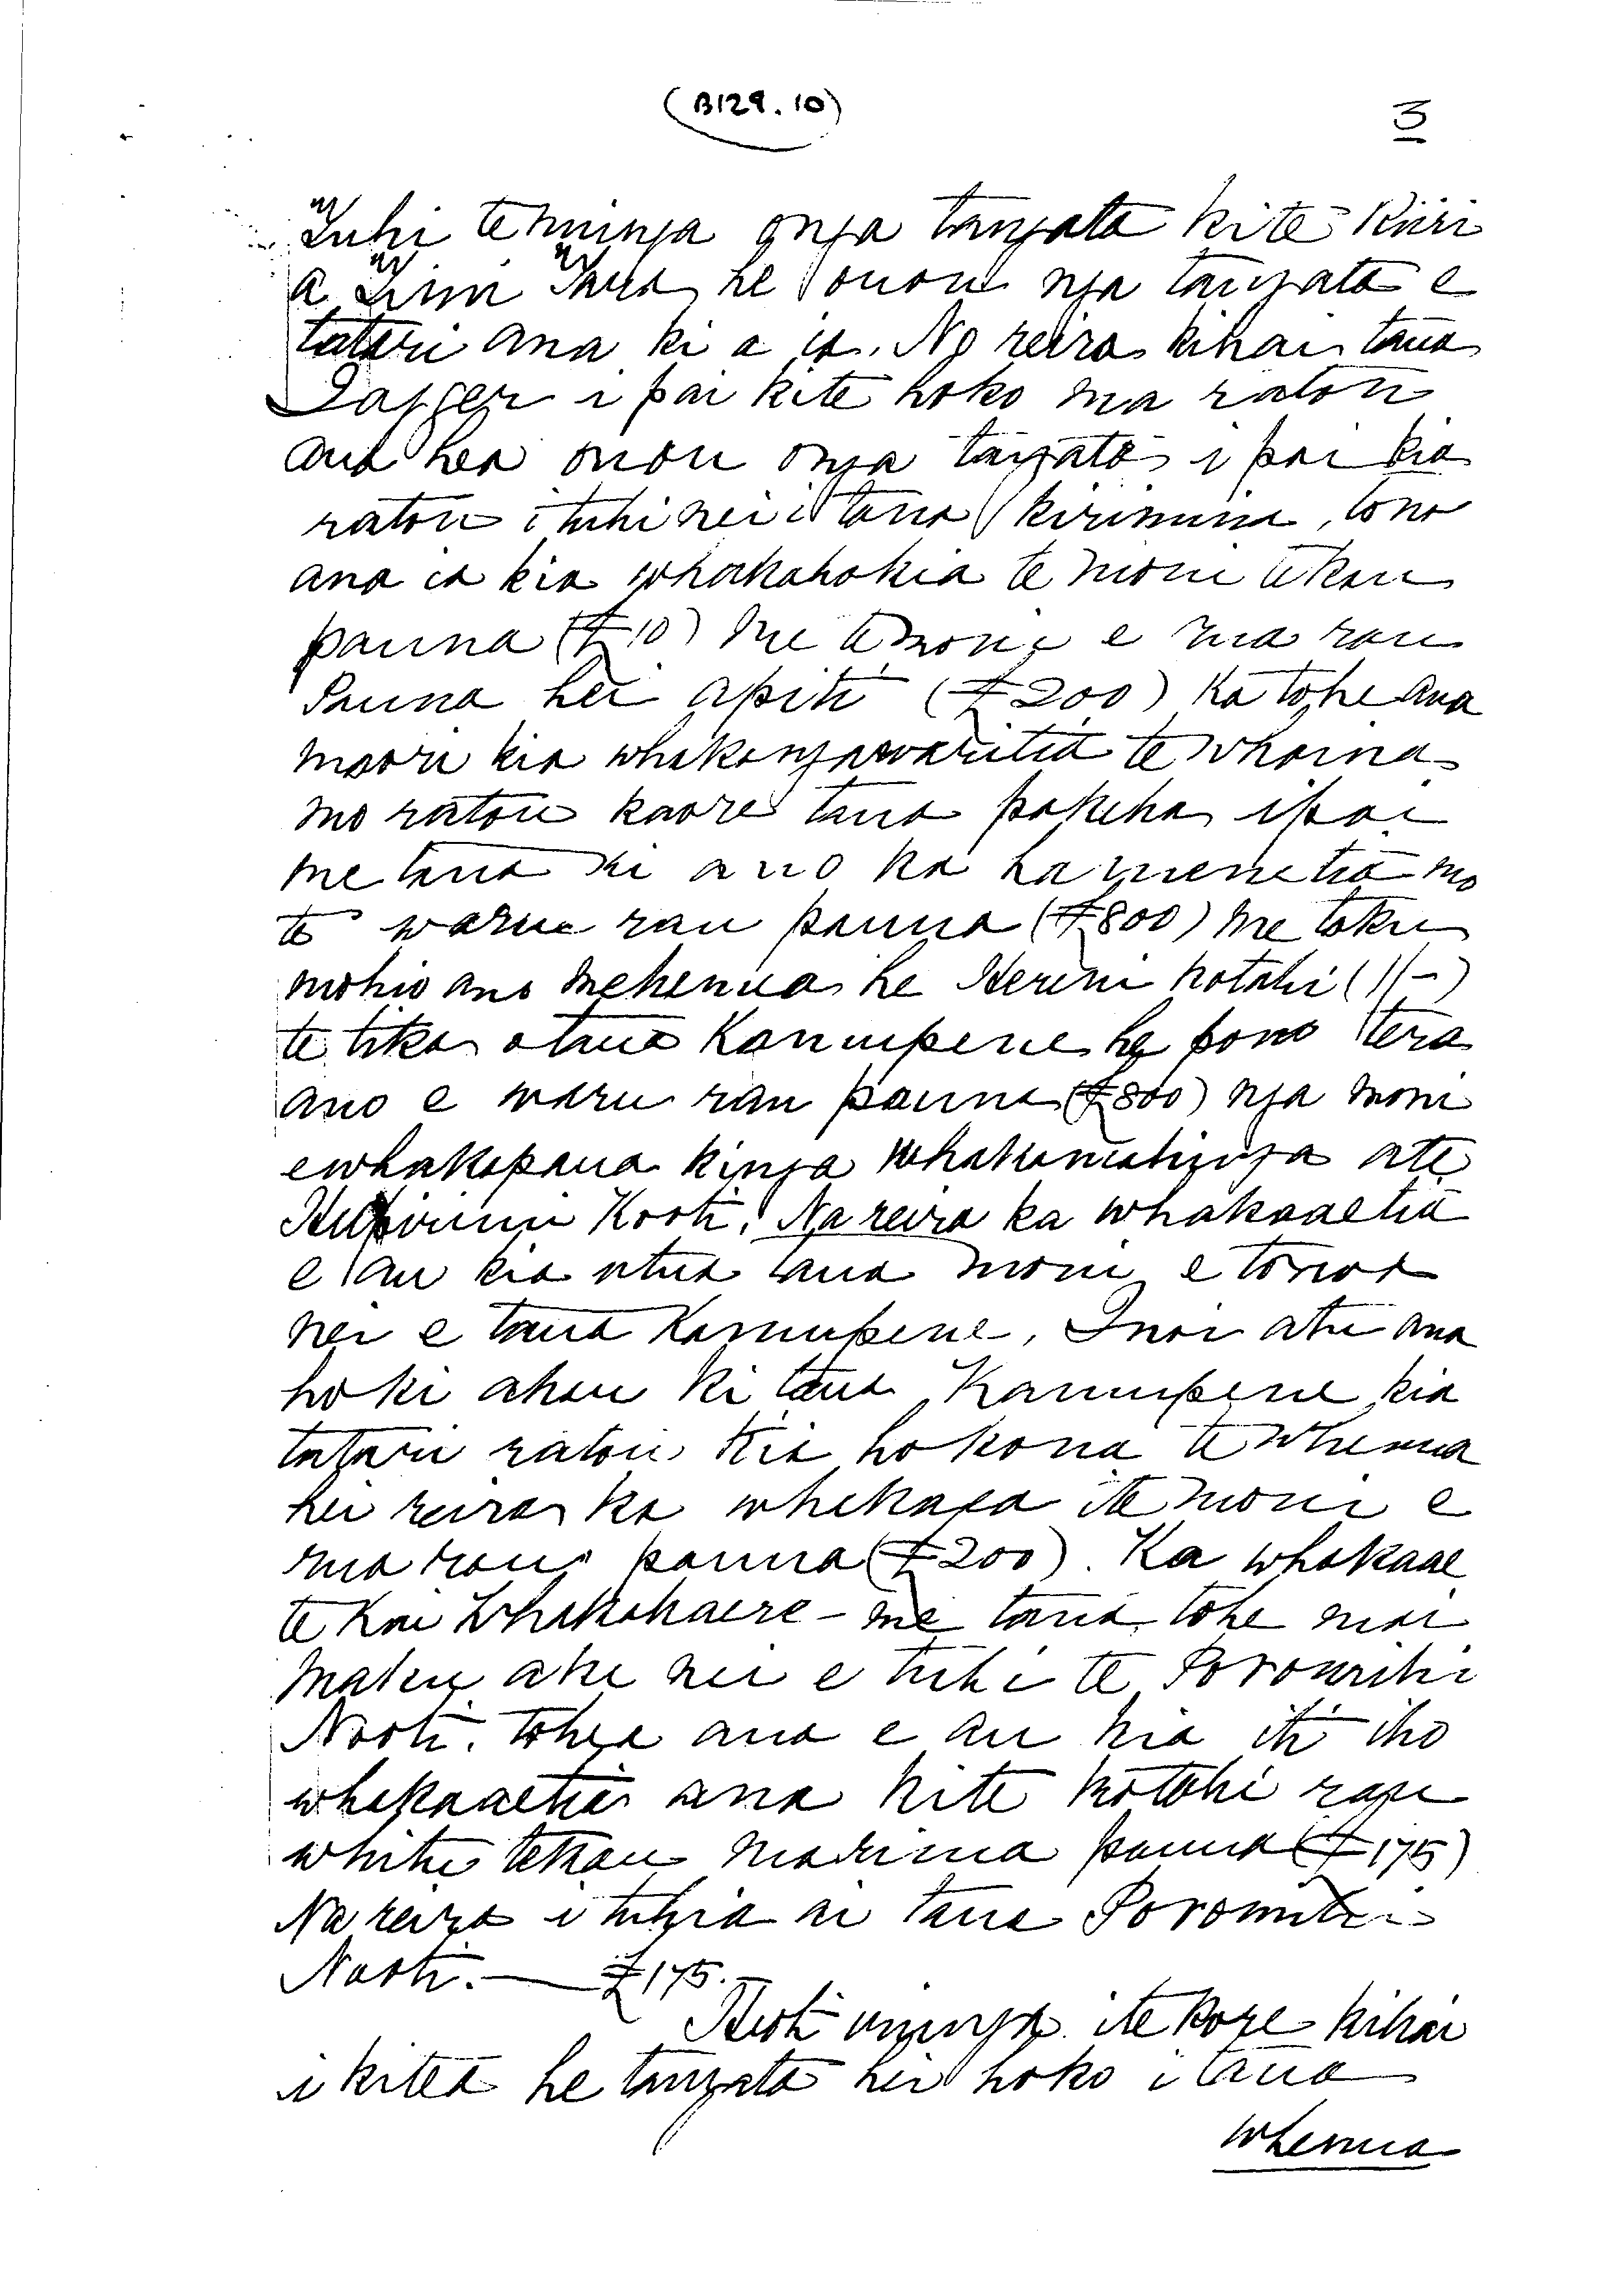 (B129.10)
3
Tuhi te ninga onga tangata kite Kiiri
a Timi Tara he onon nga tangata e
tatari ana ki a ia. No reira kihai taua
Jagger i pai kite hoko ma ratou
ana hea onou onga tangata i pai kia
ratou i tuhi nei i taua kirimina, tono
ana ia kia whakahokia te moni tekau
pauna (£10) me te moni e rua rau
Pauna hei apiti (£200) Ka tohe ana
maori kia whakangawaritia te whaina
mo ratou kaore taua pakeha i pai
me taua ki ano ka hamenetia mo
te waru rau pauna (£800) me toku
mohio ano mehemea he Hereni kotahi (1/-)
te tika o taua Kamupene he pono tera
ano e waru rau pauna (£800) nga moni
ewhakapaua kinga whakamahinga ate
Hupirimi Kooti. Na reira ka whakaaetia
e au kia utua taua moni e tonoa
nei e taua Kamupene, Inoi atu ana
hoki ahau ki taua Kamupene kia
tatari ratou kia hokona te whenua
hei reira ka whakaea ite moni e
rua rau pauna (£200). Ka whakaae
te Kai Whakahaere - me taua tohe mai
maku ake nei e tuhi te Poromihi
Nooti. tohea ana e au kia iti iho
whakaaetia ana kite kotahi rau
whitu tekau marima pauna (£175)
Na reira i tuhia ai taua Poromihi
Nooti. — £175.
Heoti ite kore kihai
i kitea he tangata hei hoko i taua
whenua